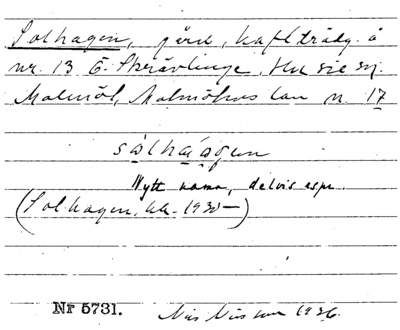 Solhagen, gård, hafl trädg. å
nr. 13 Ö. Skrävlinge, Hu sie sn
Malmöh, Malmöhus län n. 17
sólhaàgen
Nytt namn, delvis espr.
(Solhagen, kk. 1930—)
Nr 5731. Nils Nilsson 1936.